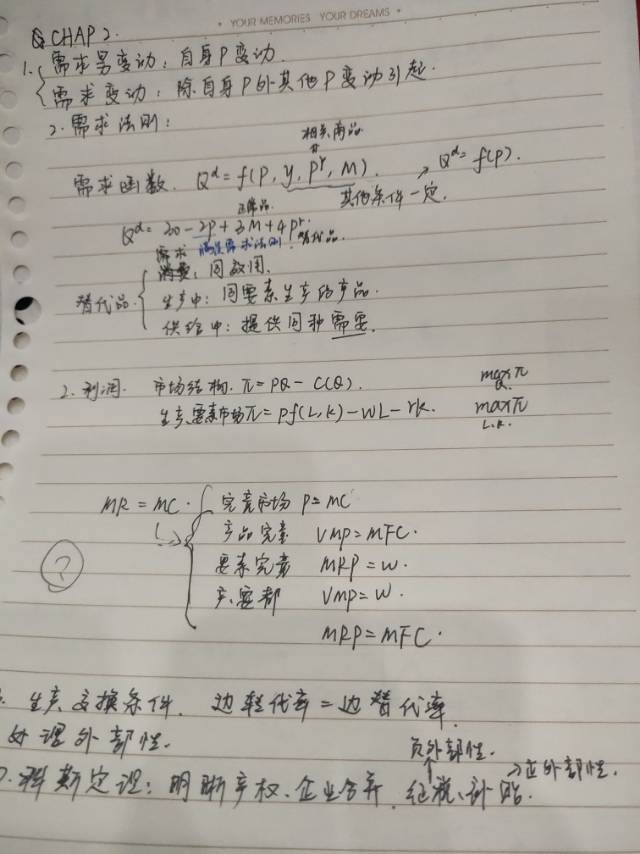 • YOUR MEMORIES YOUR DREAMS •
CHAP 2.
1. 需求男变动：自身P变动.
需求变动：除自身P外其他P变动引起.
2. 需求法则：
相关商品
需求函数. Qᵈ = f(P, y, Pʳ, M). → Qᵈ = f(P).
其他条件一定.
正常品
Qᵈ = 30 - 2P + 3M + 4Pʳ.
需求 满足需求法则 替代品.
替代品 消费：同效用.
生产中：同要素生产的产品.
供给中：提供同种需要.
2. 利润. 市场结构. π = PQ - C(Q). max π
Q.
生产要素市场 π = Pf(L, K) - WL - rK. max π
L.K.
MR = MC. 完竞市场 P = MC
产品完竞 VMP = MFC.
要素完竞 MRP = W.
产.要都 VMP = W.
MRP = MFC.
?
生产交换条件. 边转代率 = 边替代率.
处理外部性.
负外部性. → 正外部性.
科斯定理：明晰产权、企业合并. 征税、补贴.